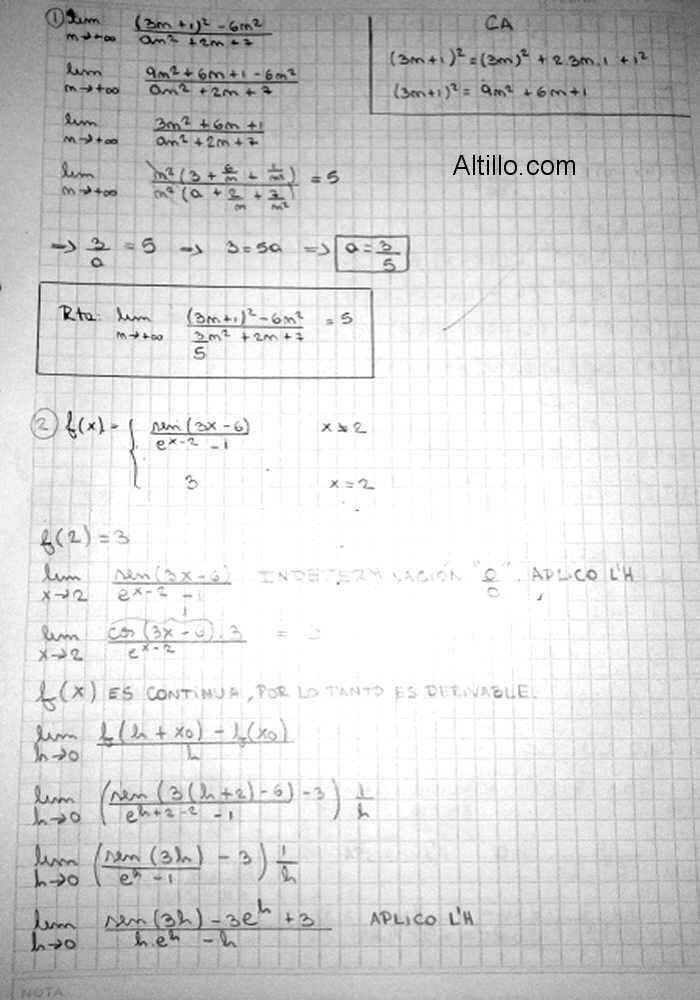 ① lim n→+∞ (3n+1)² - 6n² / an² + 2n + 7
CA
(3n+1)² = (3n)² + 2.3n.1 + 1²
(3n+1)² = 9n² + 6n + 1
lim n→+∞ 9n² + 6n + 1 - 6n² / an² + 2n + 7
lim n→+∞ 3n² + 6n + 1 / an² + 2n + 7
Altillo.com
lim n→+∞ n²(3 + 6/n + 1/n²) / n²(a + 2/n + 7/n²) = 5
→ 3/a = 5 → 3 = 5a → a = 3/5
Rta: lim n→+∞ (3n+1)² - 6n² / 3/5 n² + 2n + 7 = 5
② f(x) = { sen(3x-6) / e^(x-2) - 1 x ≠ 2
3 x = 2
f(2) = 3
lim x→2 sen(3x-6) / e^(x-2) - 1 INDETERMINACIÓN "0/0". APLICO L'H
lim x→2 cos(3x-6).3 / e^(x-2) 1 =
f(x) ES CONTINUA, POR LO TANTO ES DERIVABLE.
lim h→0 f(h+x0) - f(x0) / h
lim h→0 (sen(3(h+2)-6) / e^(h+2-2) - 1 - 3) 1/h
lim h→0 (sen(3h) / e^h - 1 - 3) 1/h
lim h→0 sen(3h) - 3e^h + 3 / h.e^h - h APLICO L'H
NOTA